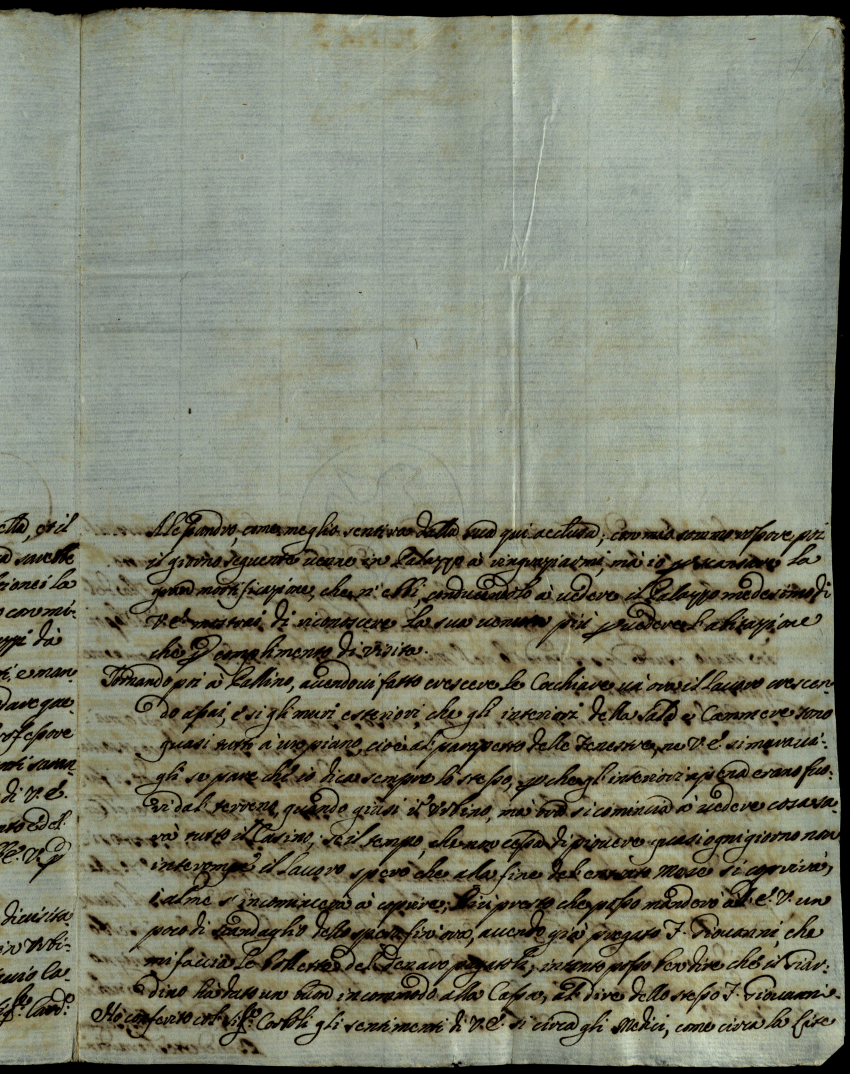 etta, et il
d sarebbe
cionci la
o con mi-
da
e man-
dare que
rofessore
di V. E.
divisita
in Urbi-
vio la
Card.
Alessandro, come meglio sentirà dalla sua qui acclusa, con mio sommo rossore poi
il giorno seguente venne in Palazzo a ringraziarmi, ma io scansare la
gran mortificazione, che n'ebbi, conducendolo a vedere il Palazzo medesimo di
V. E. mostrai di riconoscere la sua venuta più vedere l'abitazione
che complimento di visita.
Tornando poi a Pallino, avendovi fatto crescere le Cocchiare và ora il lavoro crescen-
do assai, e si gli muri esteriori, che gl'interiori della Sala e Cammere sono
quasi tutti a un piano, cioè al parapetto delle Fenestre, ne V. E. si maravi-
gli se pare ch'io dica sempre lo stesso, che gl'interiori appena erano fuo-
ri dal terreno, quando giunsi in Urbino, ma ora si comincia a vedere cosa sa-
rà tutto il Casino, e il tempo, che non cessa di piovere quasi ogni giorno non
interrompe il lavoro spero che alla fine del entrante Mese si coprirà,
o alme s'incomincerà a coprire; più presto che posso manderò a V. E. un
poco di scandaglio della spesa fin'ora, avendo già pregato F. Giovanni, che
mi faccia le bollette del denaro pagatoli, intanto posso ben dire che il Giar-
dino ha dato un buon incommodo alla Cassa, al dire dello stesso F. Giovanni.
Ho conferito col Sig.e Costoli gli sentimenti di V. E. si circa gli Medici, come circa la Lite